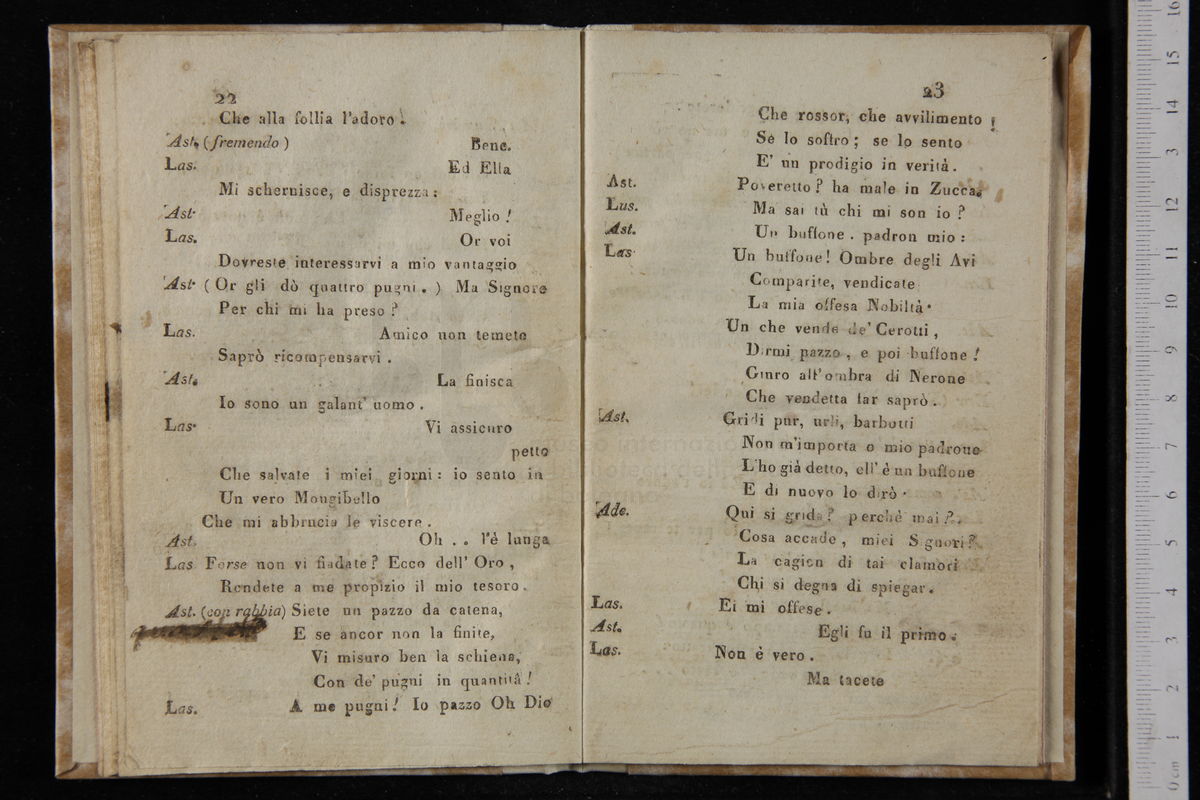 22
Che alla follia l'adoro.
Ast. (fremendo) Bene.
Las. Ed Ella
Mi schernisce, e disprezza:
Ast. Meglio!
Las. Or voi
Dovreste interessarvi a mio vantaggio
Ast. (Or gli dò quattro pugni.) Ma Signore
Per chi mi ha preso?
Las. Amico non temete
Saprò ricompensarvi.
Ast. La finisca
Io sono un galant' uomo.
Las. Vi assicuro
petto
Che salvate i miei giorni: io sento in
Un vero Mongibello
Che mi abbrucia le viscere.
Ast. Oh .. l'è lunga
Las Forse non vi fiadate? Ecco dell' Oro,
Rendete a me propizio il mio tesoro.
Ast. (con rabbia) Siete un pazzo da catena,
E se ancor non la finite,
Vi misuro ben la schiena,
Con de' pugni in quantità!
Las. A me pugni! Io pazzo Oh Dio
23
Che rossor, che avvilimento!
Se lo soffro; se lo sento
E' un prodigio in verità.
Ast. Poveretto? ha male in Zucca.
Lus. Ma sai tù chi mi son io?
Ast. Un buffone. padron mio:
Las. Un buffone! Ombre degli Avi
Comparite, vendicate
La mia offesa Nobiltà.
Un che vende de' Cerotti,
Dirmi pazzo, e poi buffone!
Giuro all' ombra di Nerone
Che vendetta far saprò.
Ast. Gridi pur, urli, barbotti
Non m'importa o mio padrone
L'ho già detto, ell' è un buffone
E di nuovo lo dirò.
Ade. Qui si grida? perchè mai?
Cosa accade, miei Signori?
La cagion di tai clamori
Chi si degna di spiegar.
Las. Ei mi offese.
Ast. Egli fu il primo.
Las. Non è vero.
Ma tacete